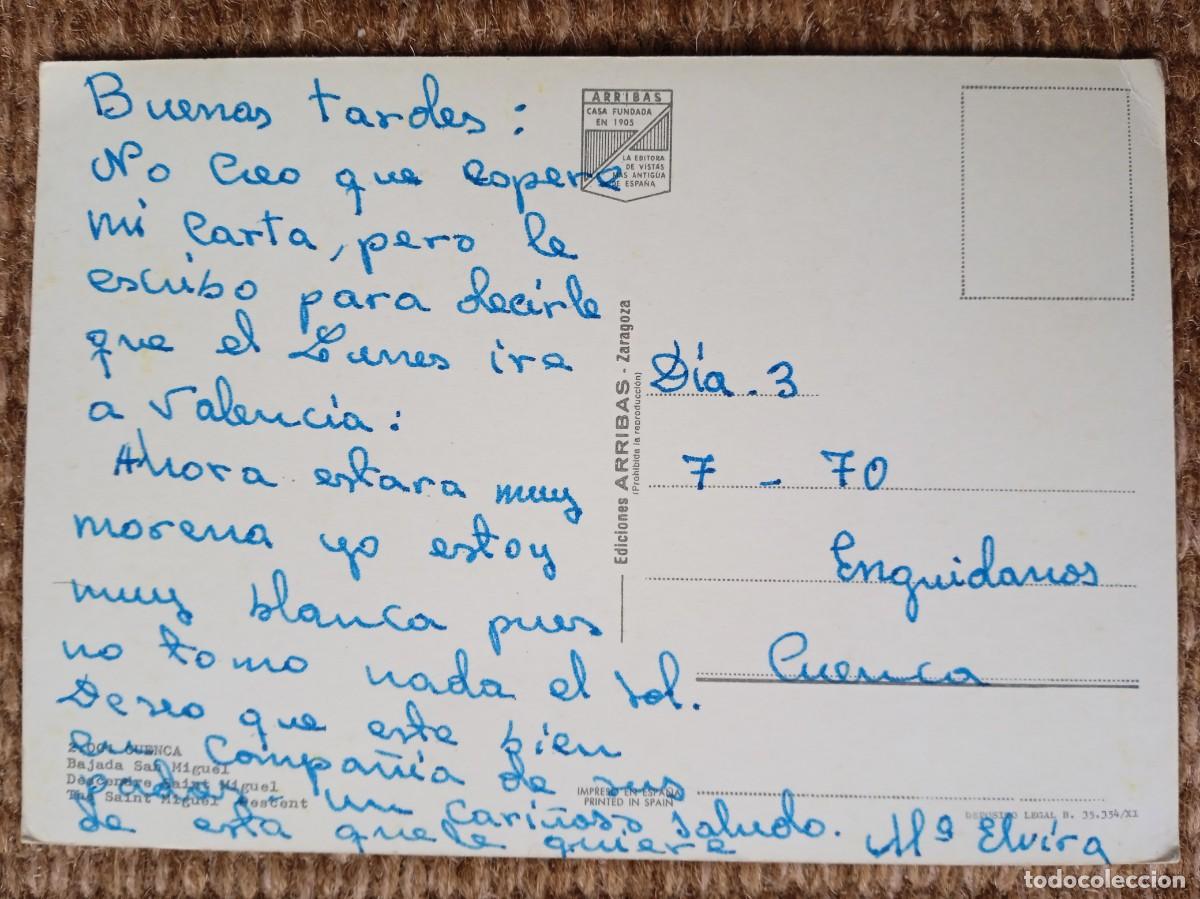 Buenas tardes:
No Creo que espere
mi Carta, pero le
escribo para decirle
que el Lunes ire
a Valencia:
Ahora estara muy
morena yo estoy
muy blanca pues
no tomo nada el sol.
Deseo que este bien
en Compañia de sus
padres un cariñoso saludo.
de esta que le quiere Mª Elvira
2.001 CUENCA
Bajada San Miguel
Descendre Saint Miguel
The Saint Miguel Descent
ARRIBAS
CASA FUNDADA
EN 1905
LA EDITORA
DE VISTAS
MAS ANTIGÜA
DE ESPAÑA
Ediciones ARRIBAS - Zaragoza
(Prohibida la reproducción)
Día. 3
7 - 70
Enguidanos
Cuenca
IMPRESO EN ESPAÑA
PRINTED IN SPAIN
DEPOSITO LEGAL B. 35.354/XI
todocoleccion